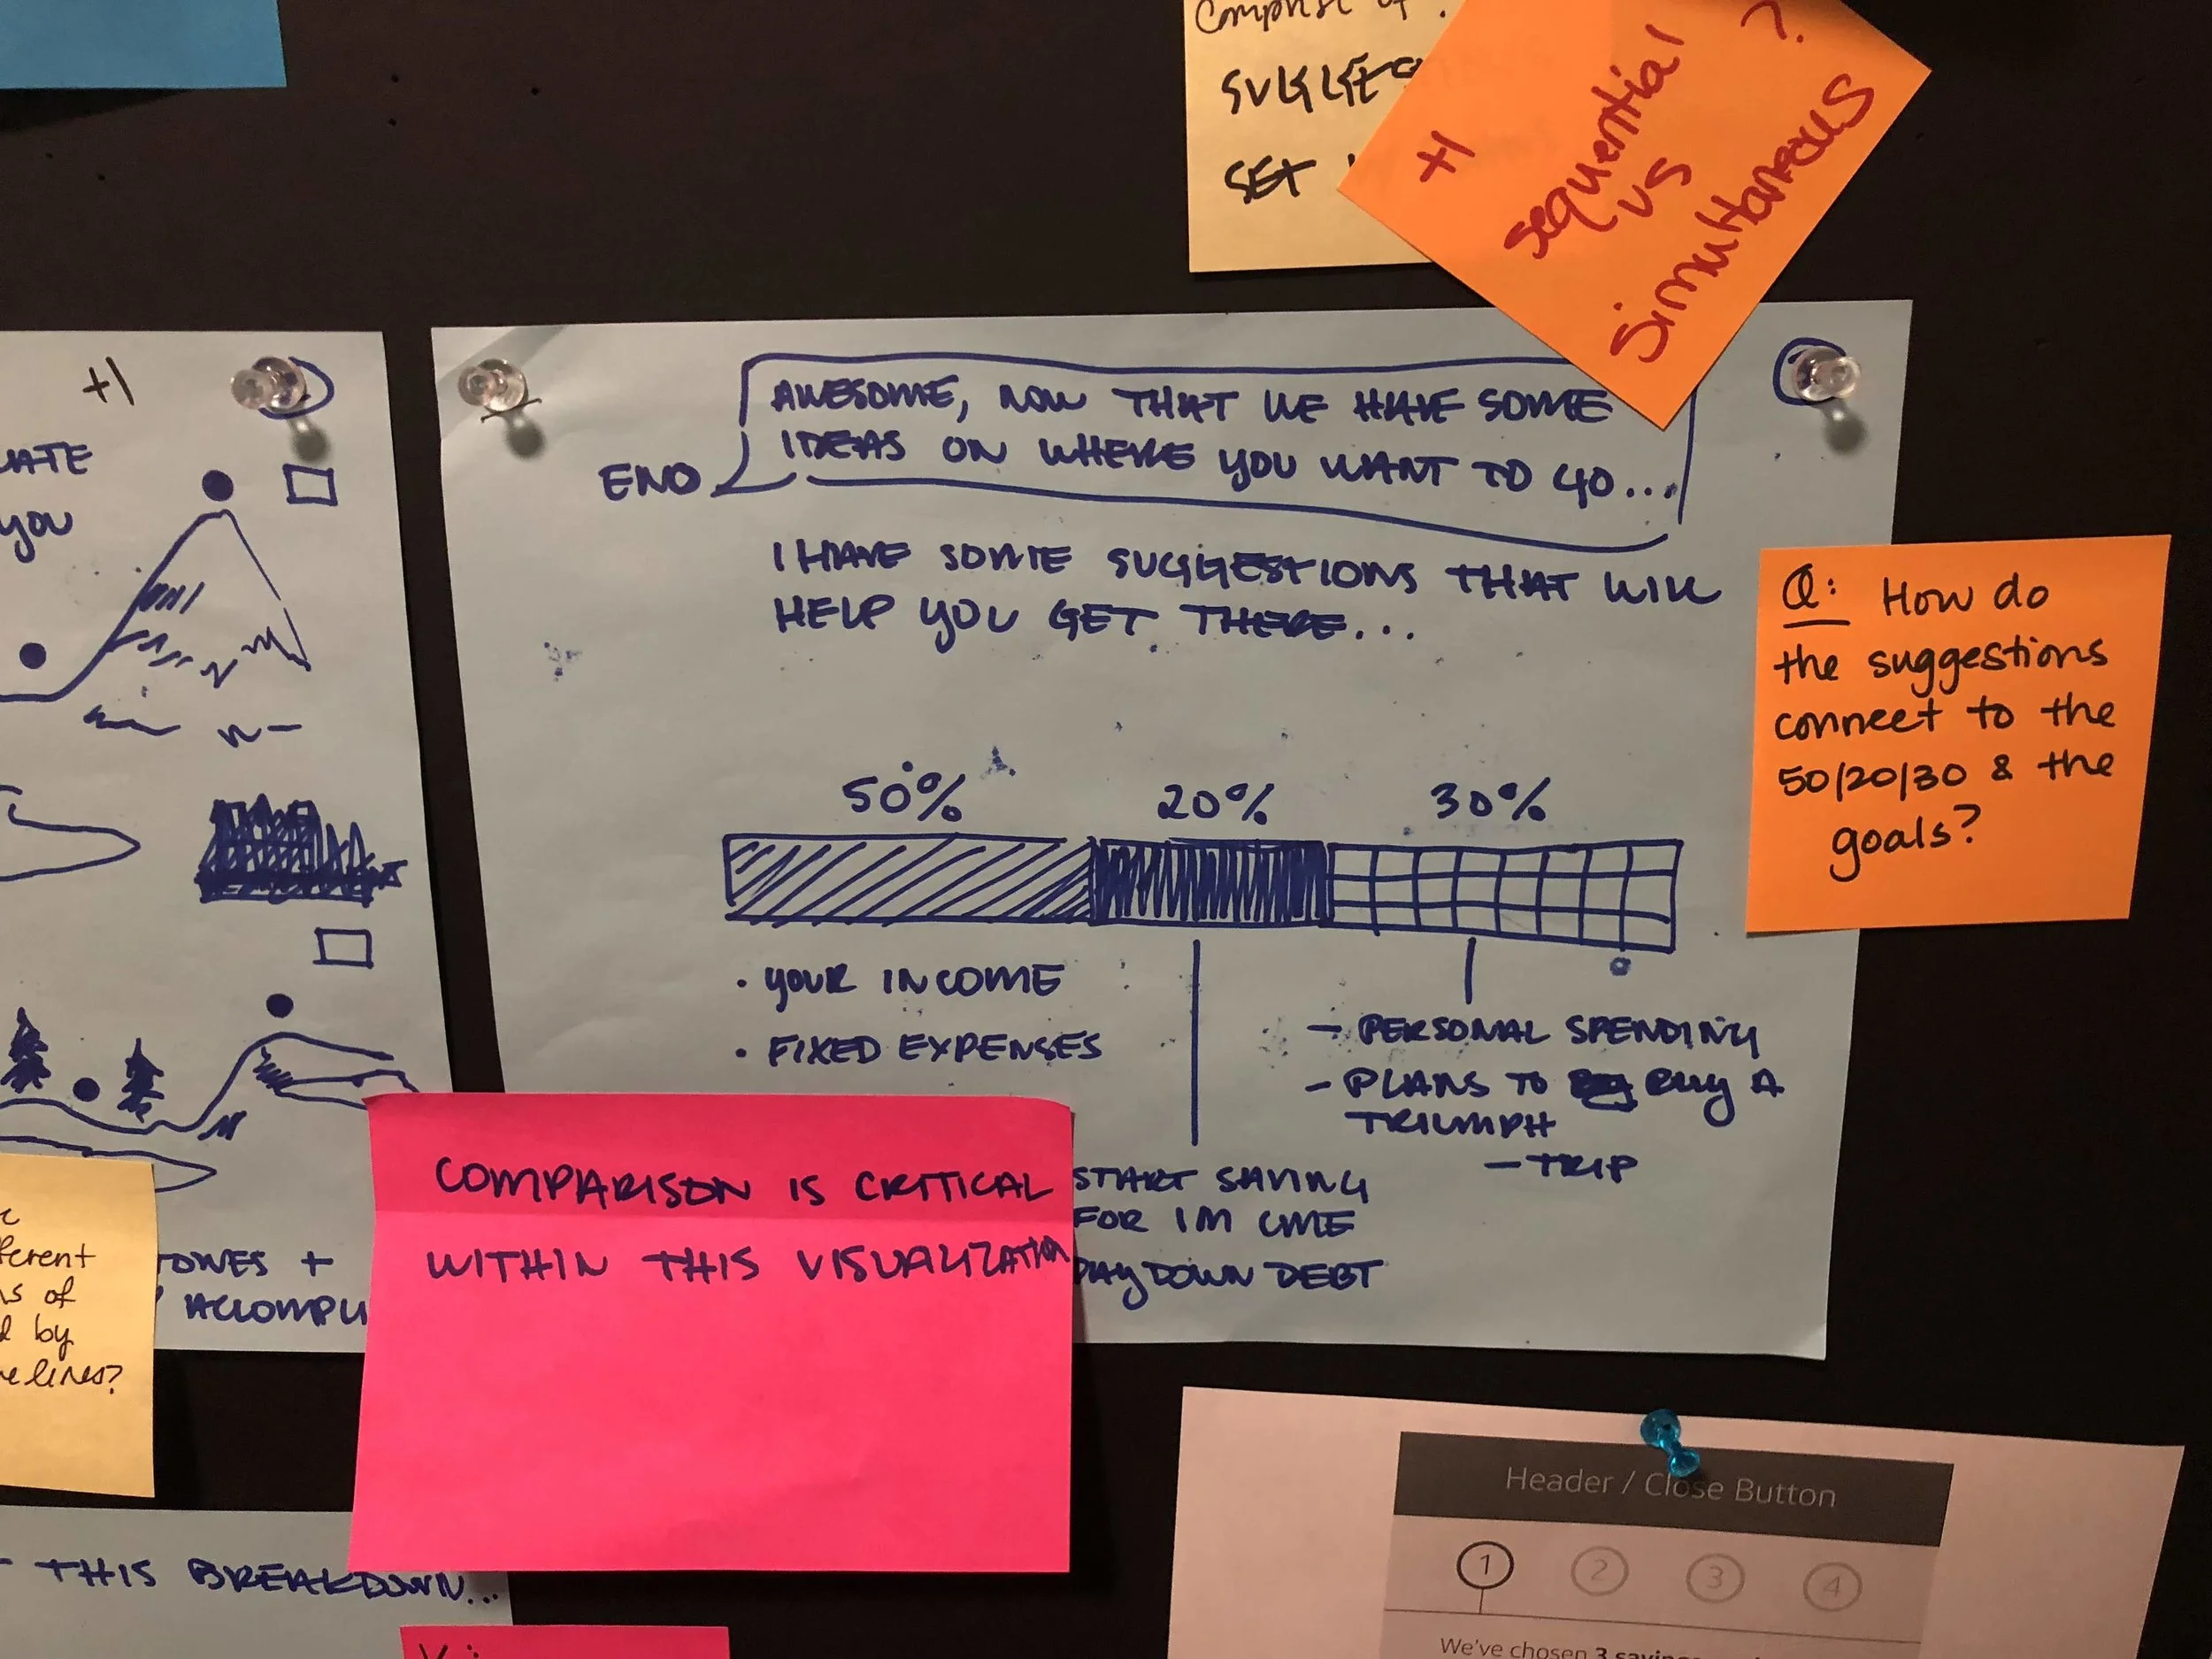 SUGGES
SET
+1
sequential
vs
simultaneous
?
+1
YOU
END
AWESOME, NOW THAT WE HAVE SOME
IDEAS ON WHERE YOU WANT TO GO...
I HAVE SOME SUGGESTIONS THAT WILL
HELP YOU GET THERE...
50%
20%
30%
• YOUR INCOME
• FIXED EXPENSES
START SAVING
FOR
PAY DOWN DEBT
- PERSONAL SPENDING
- PLANS TO BUY A
TRIUMPH
- TRIP
Q: How do
the suggestions
connect to the
50/20/30 & the
goals?
COMPARISON IS CRITICAL
WITHIN THIS VISUALIZATION
ferent
s of
by
lines?
TONES +
ACCOMPLI
- THIS BREAKDOWN...
Header / Close Button
1
2
3
4
We've chosen 3 saving